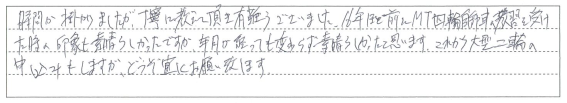 時間が掛かりましたが、丁寧に教えて頂き有難うございました。16年ほど前にMT四輪所時教習を受け
た時の印象も素晴らしかったですが、年月が経っても変わらず素晴らしかったと思います。これから大型二輪の
申込みもしますが、どうぞ宜しくお願い致します